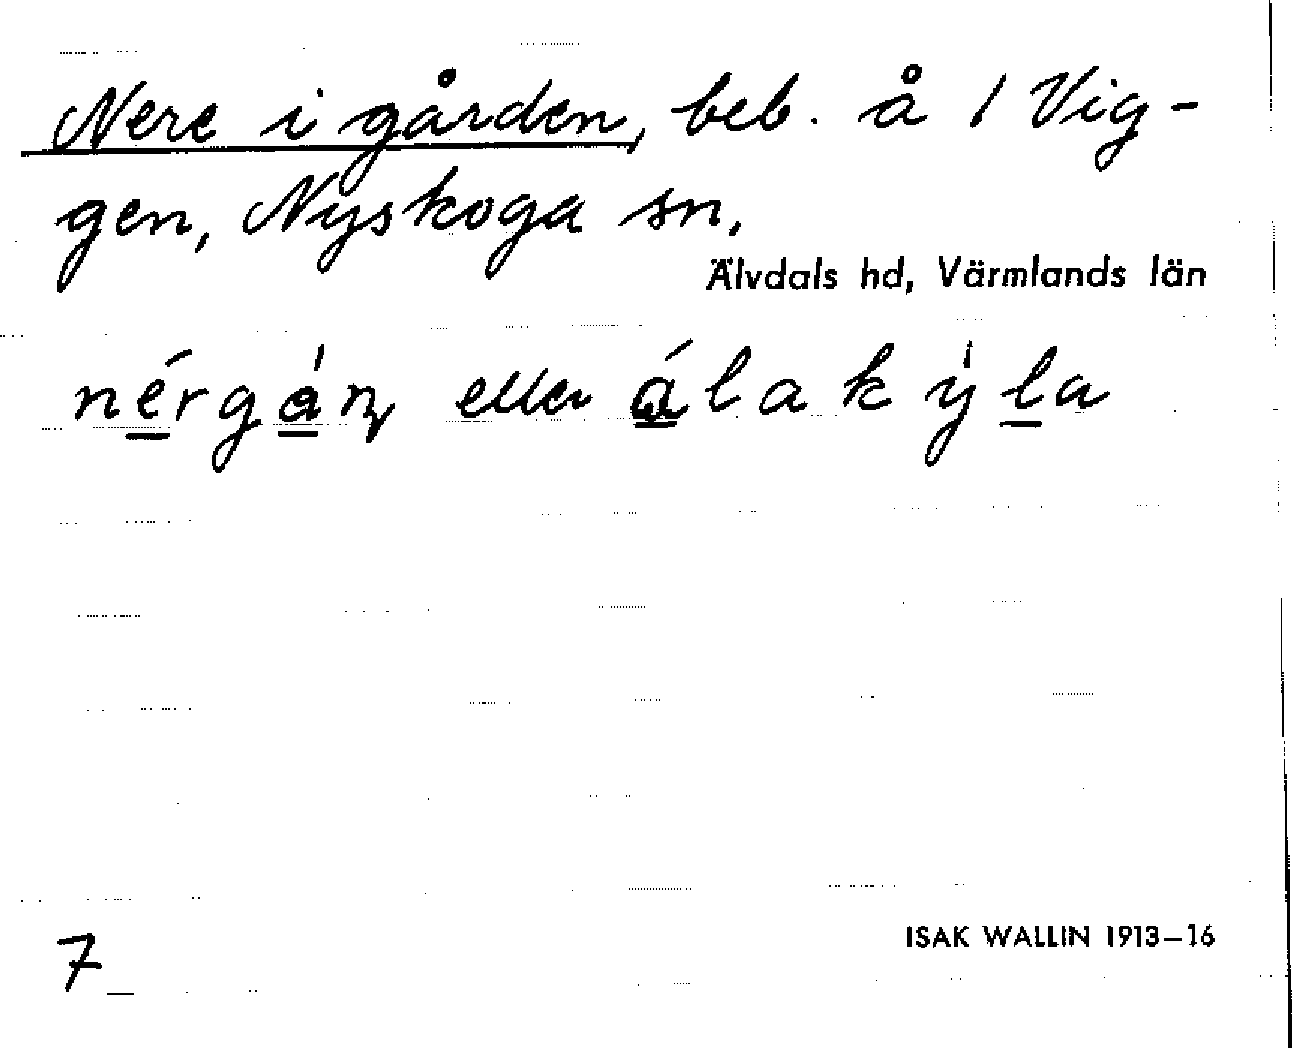 Nere i gården, beb. å 1 Vig-
gen, Nyskoga sn,
Älvdals hd, Värmlands län
nérgán eller álakýla
7
ISAK WALLIN 1913–16